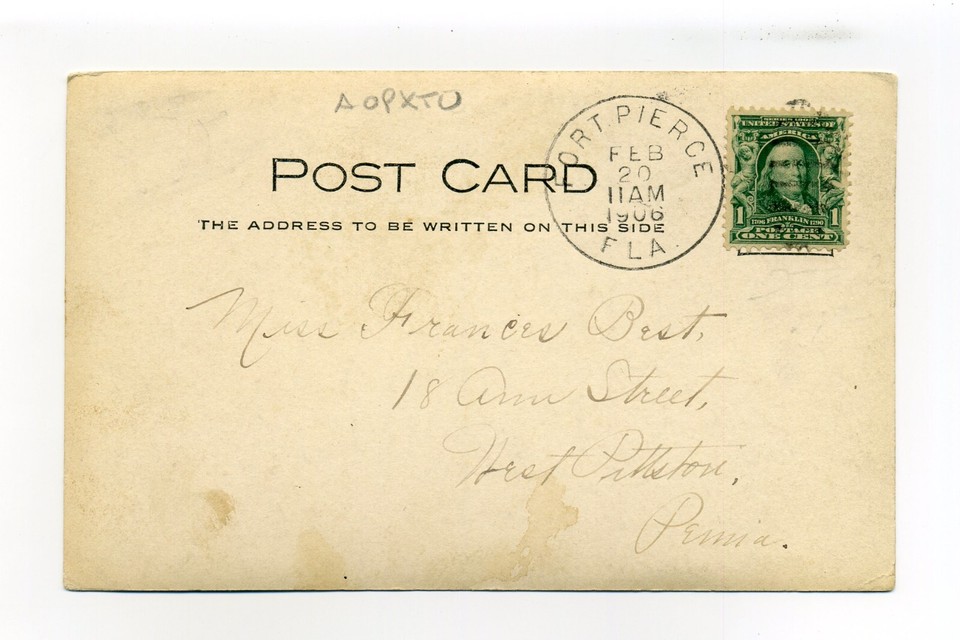 AOPXTO
FORT PIERCE
FEB
20
11AM
1906
FLA.
POST CARD
THE ADDRESS TO BE WRITTEN ON THIS SIDE
SERIES 1902
UNITED STATES OF
AMERICA
1706 FRANKLIN 1790
1 POSTAGE 1
ONE CENT
Miss Frances Best,
18 Ann Street,
West Pittston,
Penna.